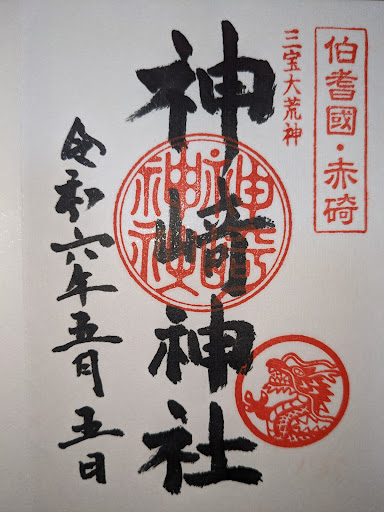 伯耆國・赤碕
三宝大荒神
神﨑神社
神﨑神社
令和六年五月五日